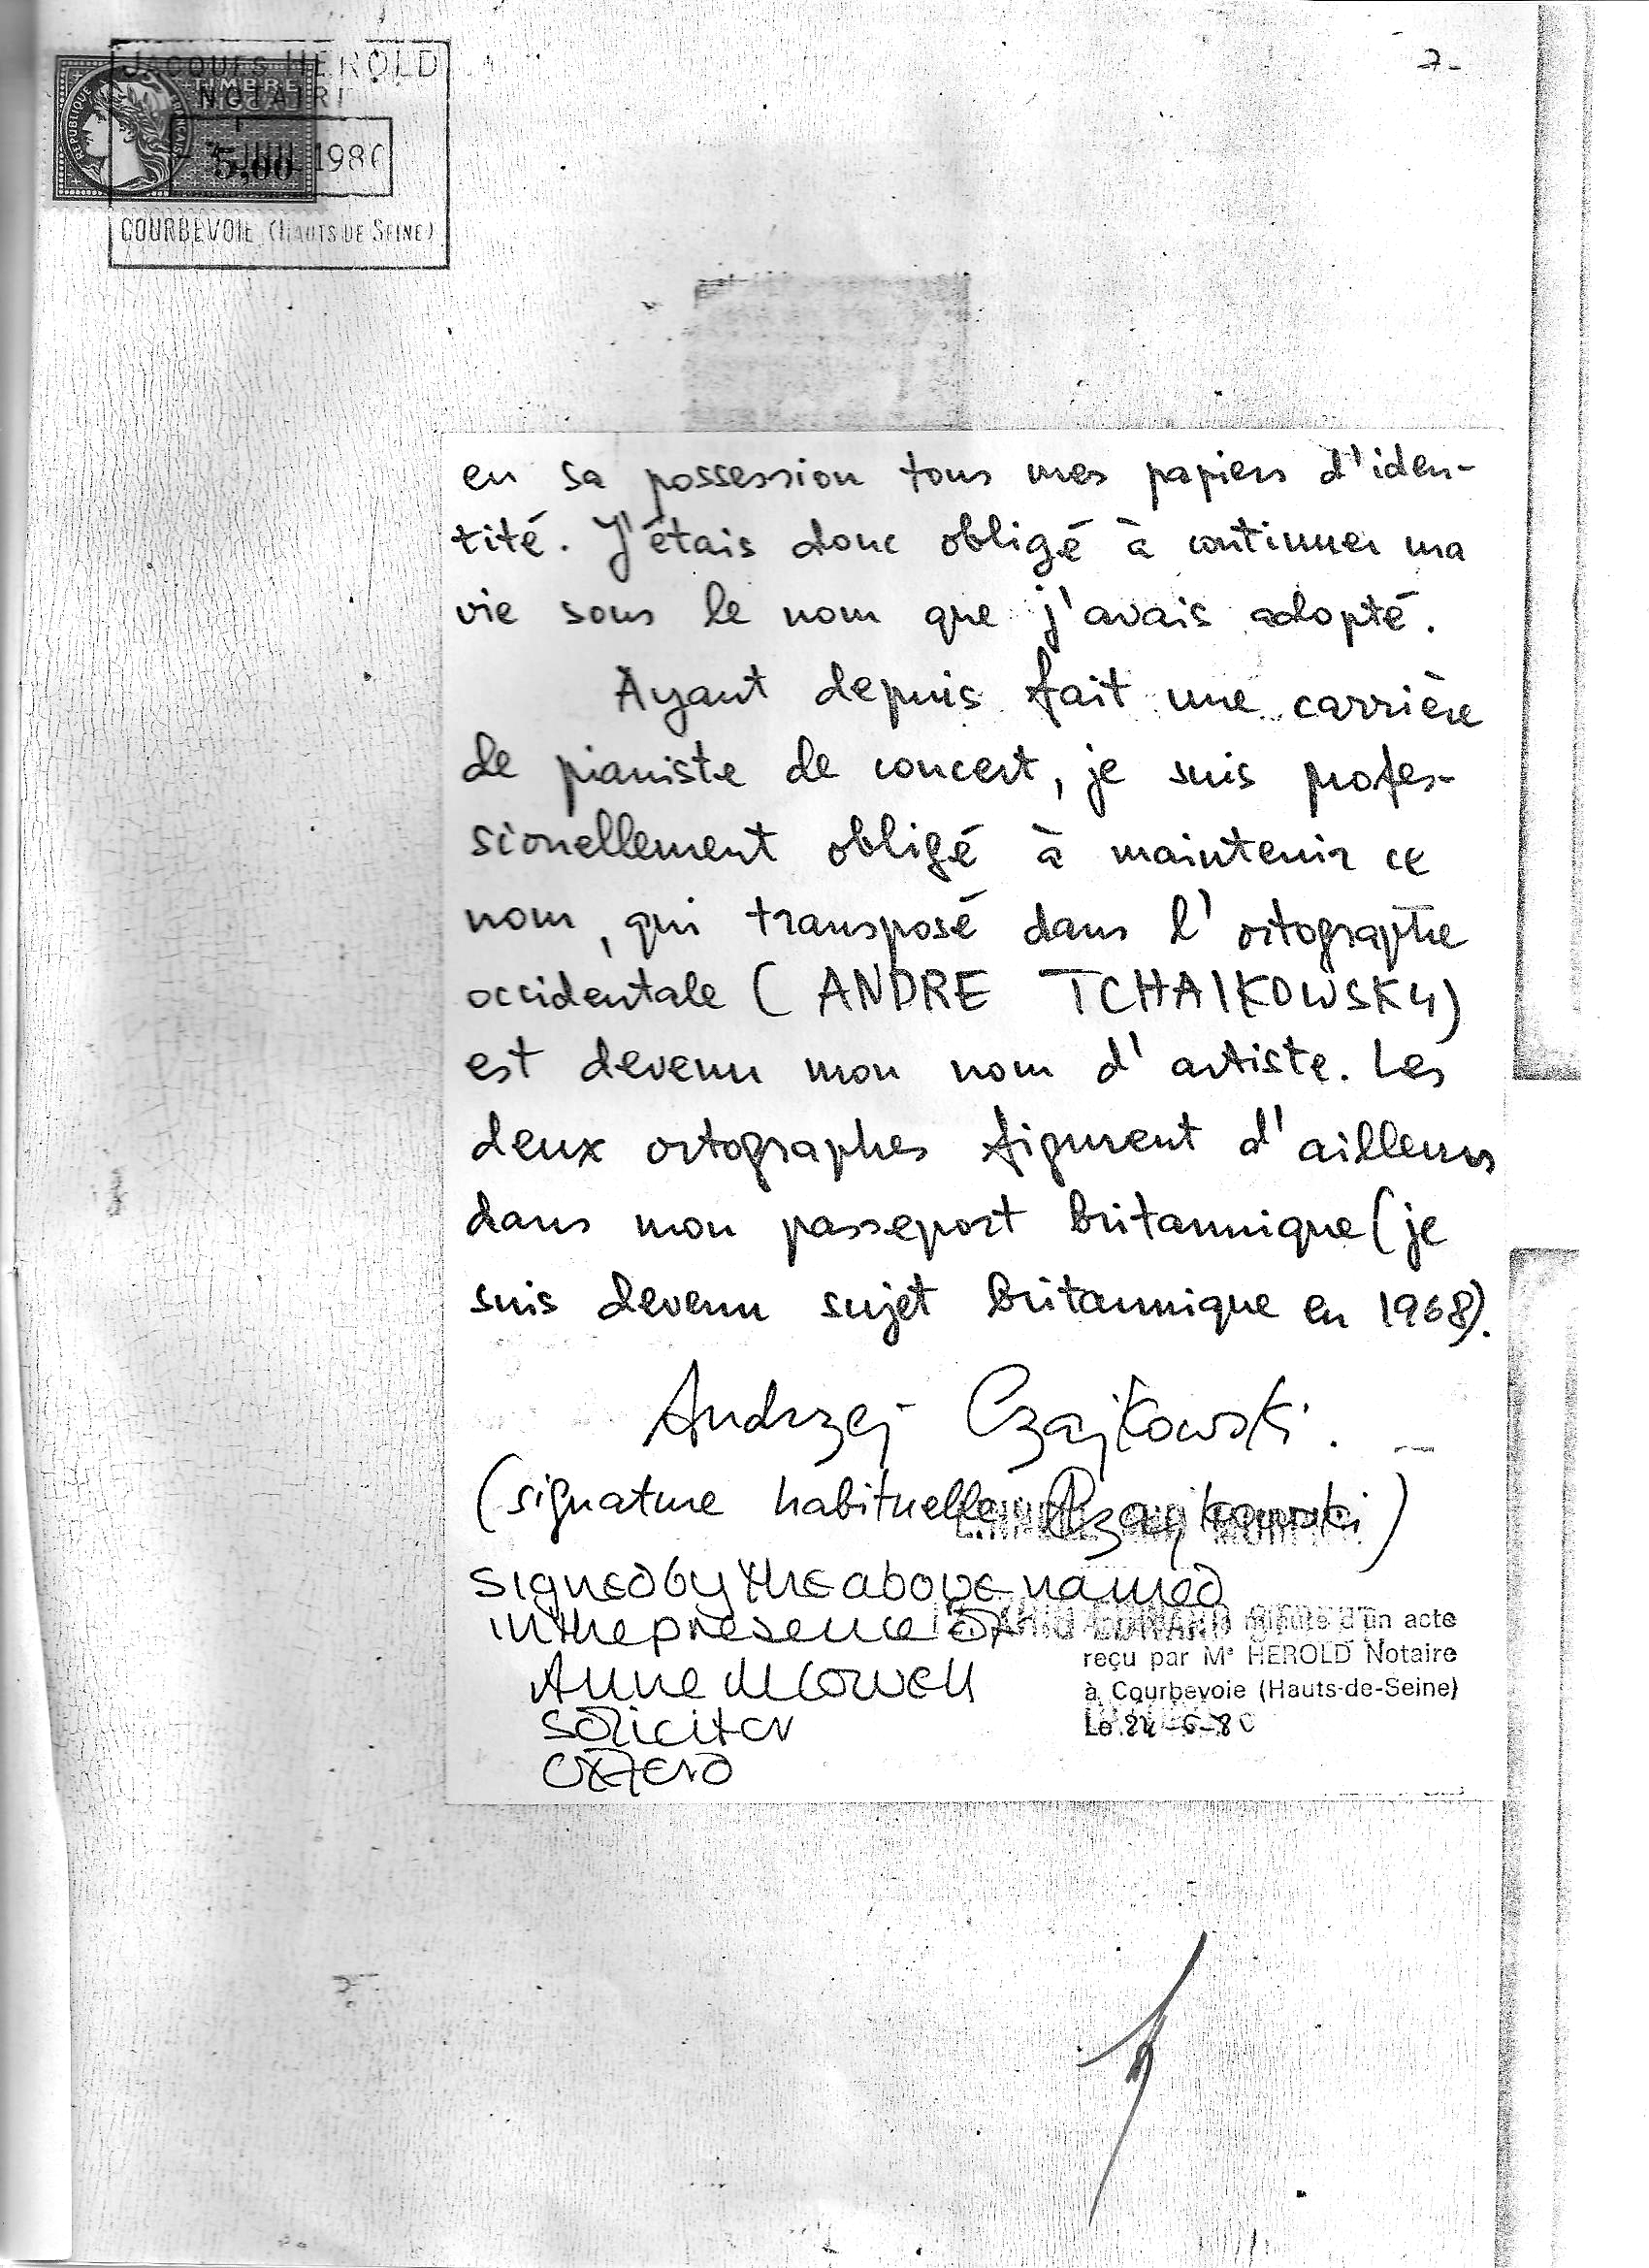 7-
JACQUES HEROLD
NOTAIRE
TIMBRE
REPUBLIQUE
5,00
1980
COURBEVOIE (HAUTS DE SEINE)
en sa possession tous mes papiers d'iden-
tité. J'étais donc obligé à continuer ma
vie sous le nom que j'avais adopté.
Ayant depuis fait une carrière
de pianiste de concert, je suis profes-
sionellement obligé à maintenir ce
nom, qui transposé dans l'ortographe
occidentale (ANDRE TCHAIKOWSKY)
est devenu mon nom d'artiste. Les
deux ortographes figurent d'ailleurs
dans mon passeport britannique (je
suis devenu sujet britannique en 1968).
Andrzej Czajkowski.
(signature habituelle Czajkowski)
signed by the above named
in the presence of
Anne M Cowell
Solicitor
Oxford
minute d'un acte
reçu par Me HEROLD Notaire
à Courbevoie (Hauts-de-Seine)
Le 24-6-80